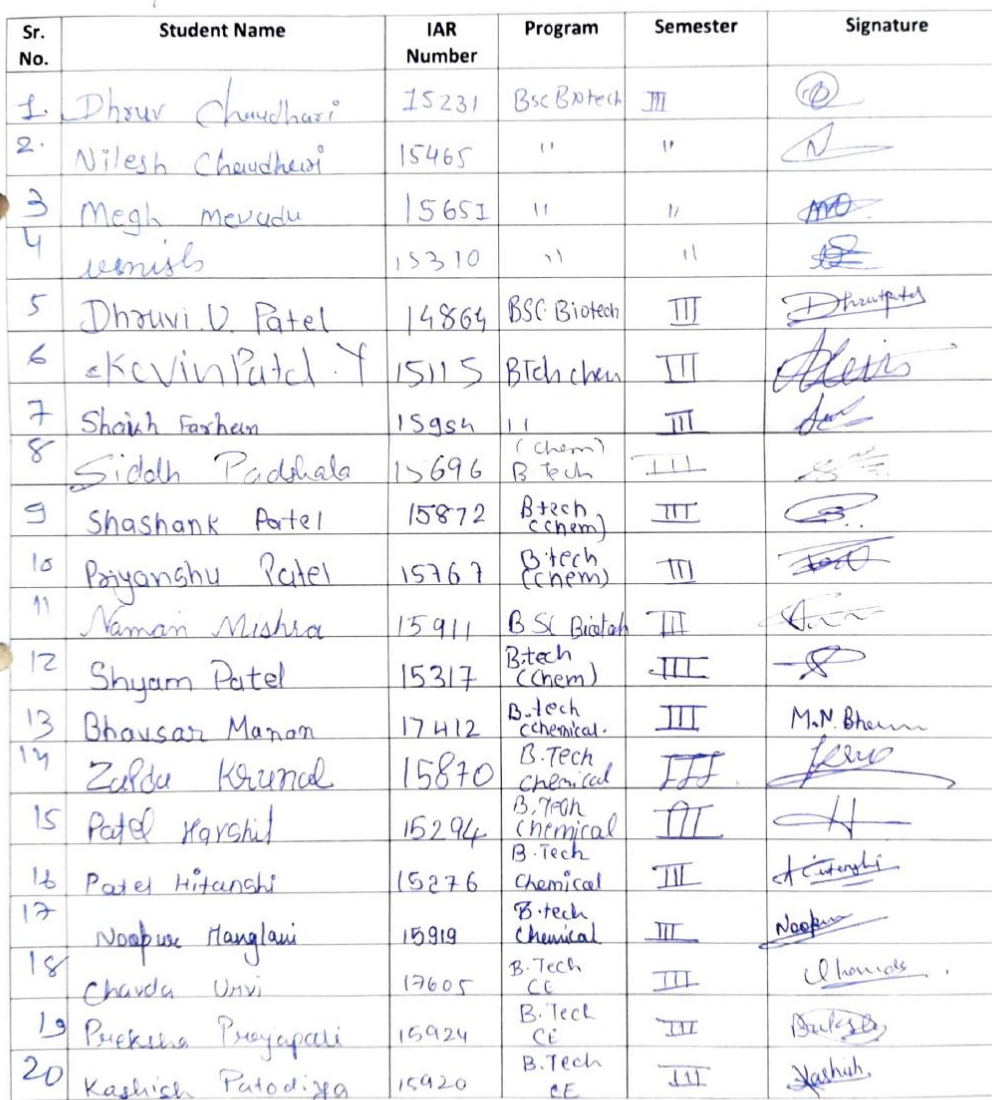 Sr. No. Student Name IAR Number Program Semester Signature
1. Dhruv Chaudhari 15231 Bsc Biotech III
2. Nilesh Chaudhari 15465 " " N
3 Megh Mevadu 15651 " "
4 15310 " "
5 Dhruvi. V. Patel 14864 BSC Biotech III
6 Kevin Patel . Y 15115 BTch chem III
7 Shaikh Farhan 15954 " III
8 Siddh Padshala 15696 (Chem) B Tech III
9 Shashank Patel 15872 Btech (Chem) III
10 Priyanshu Patel 15767 B.tech (Chem) III
11 Naman Mishra 15911 B SC Biotech III
12 Shyam Patel 15317 B.tech (Chem) III
13 Bhavsar Manan 17412 B.tech Chemical. III
14 Krunal 15870 B.Tech Chemical III
15 Patel Harshil 15294 B.Tech Chemical III H
16 Patel Hitanshi 15276 B.Tech Chemical III Hitanshi
17 Noopur Manglani 15919 B.tech Chemical III Noopur
18 Chavda Urvi 17605 B.Tech CE III
19 Preksha Prajapati 15924 B.Tech CE III
20 Kashish Patodiya 15920 B.Tech CE III Kashish.